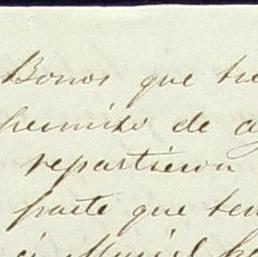 Bonos que tie
permiso de a
repartieron
parte que ten
á Muriel